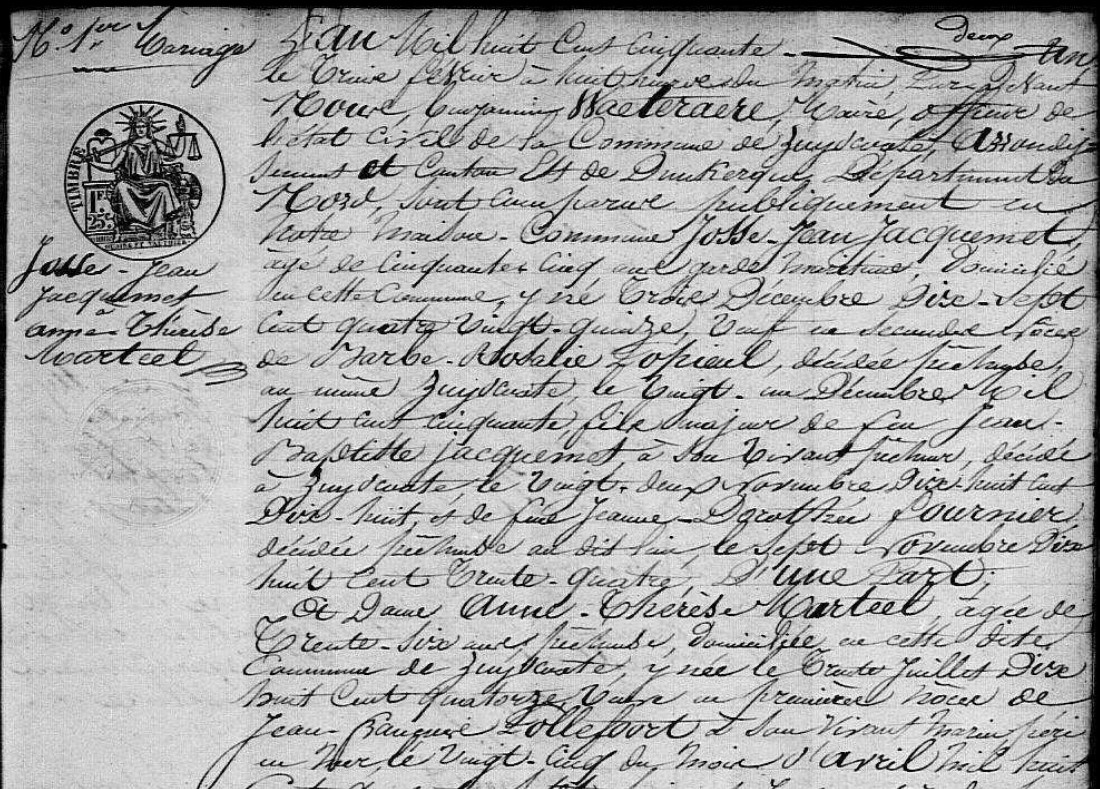 N.o 1.er Mariage
Josse-Jean
Jacquemet
à
anne-Thérèse
Marteel
TIMBRE
1 F.
25
L'an Mil huit Cent Cinquante - deux un,
le Treize février à huit heures du matin, Pardevant
Nous, Benjamin Waeteraere, Maire, officier de
l'état Civil de la Commune de Zuydcoote, Arrondis-
sement et Canton Est de Dunkerque, Département du
Nord, sont comparus publiquement en
notre Maison-Commune Josse-Jean Jacquemet,
âgé de Cinquante Cinq ans garde maritime, domicilié
en cette Commune, y né Trois Décembre Dix-Sept
Cent quatre Vingt-quinze, Veuf en secondes noces
de Barbe-Rosalie Lopieul, décédée pêcheuse,
au même Zuydcoote, le Vingt-un Décembre Mil
huit cent cinquante fils majeur de feu Jean-
Baptiste Jacquemet, à son Vivant pêcheur, décédé
à Zuydcoote, le Vingt-deux Novembre Dix-huit cent
Dix-huit, et de feue Jeanne-Dorothée fournier,
décédée pêcheuse au dit lieu, le Sept Novembre Dix
huit Cent Trente-quatre, D'une Part;
Et Dame Anne-Thérèse Marteel âgée de
Trente-six ans pêcheuse, domiciliée en cette dite
Commune de Zuydcoote, y née le Trente Juillet Dix
huit Cent quatorze, Veuve en premières noces de
Jean-François Zollefort à son Vivant Marin péri
en Mer, le Vingt-Cinq du Mois d'avril Mil huit